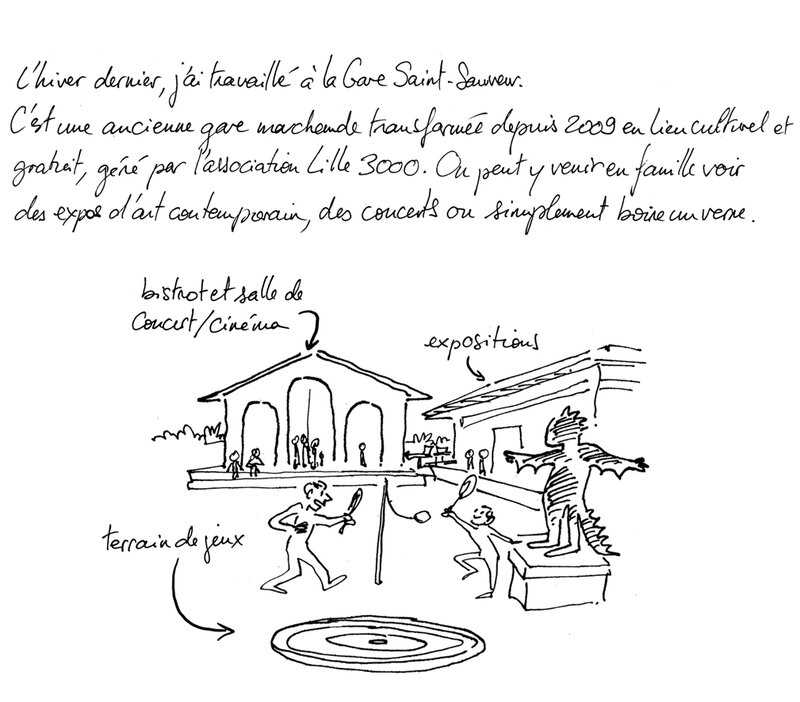 L'hiver dernier, j'ai travaillé à la Gare Saint-Sauveur.
C'est une ancienne gare marchande transformée depuis 2009 en lieu culturel et
gratuit, géré par l'association Lille 3000. On peut y venir en famille voir
des expos d'art contemporain, des concerts ou simplement boire un verre.
bistrot et salle de
concert/cinéma
expositions
terrain de jeux